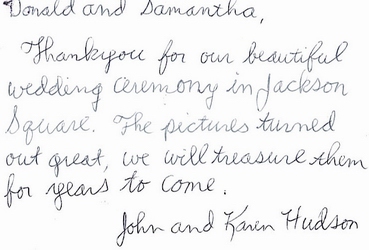 Donald and Samantha,
Thankyou for our beautiful
wedding ceremony in Jackson
Square. The pictures turned
out great, we will treasure them
for years to come.
John and Karen Hudson